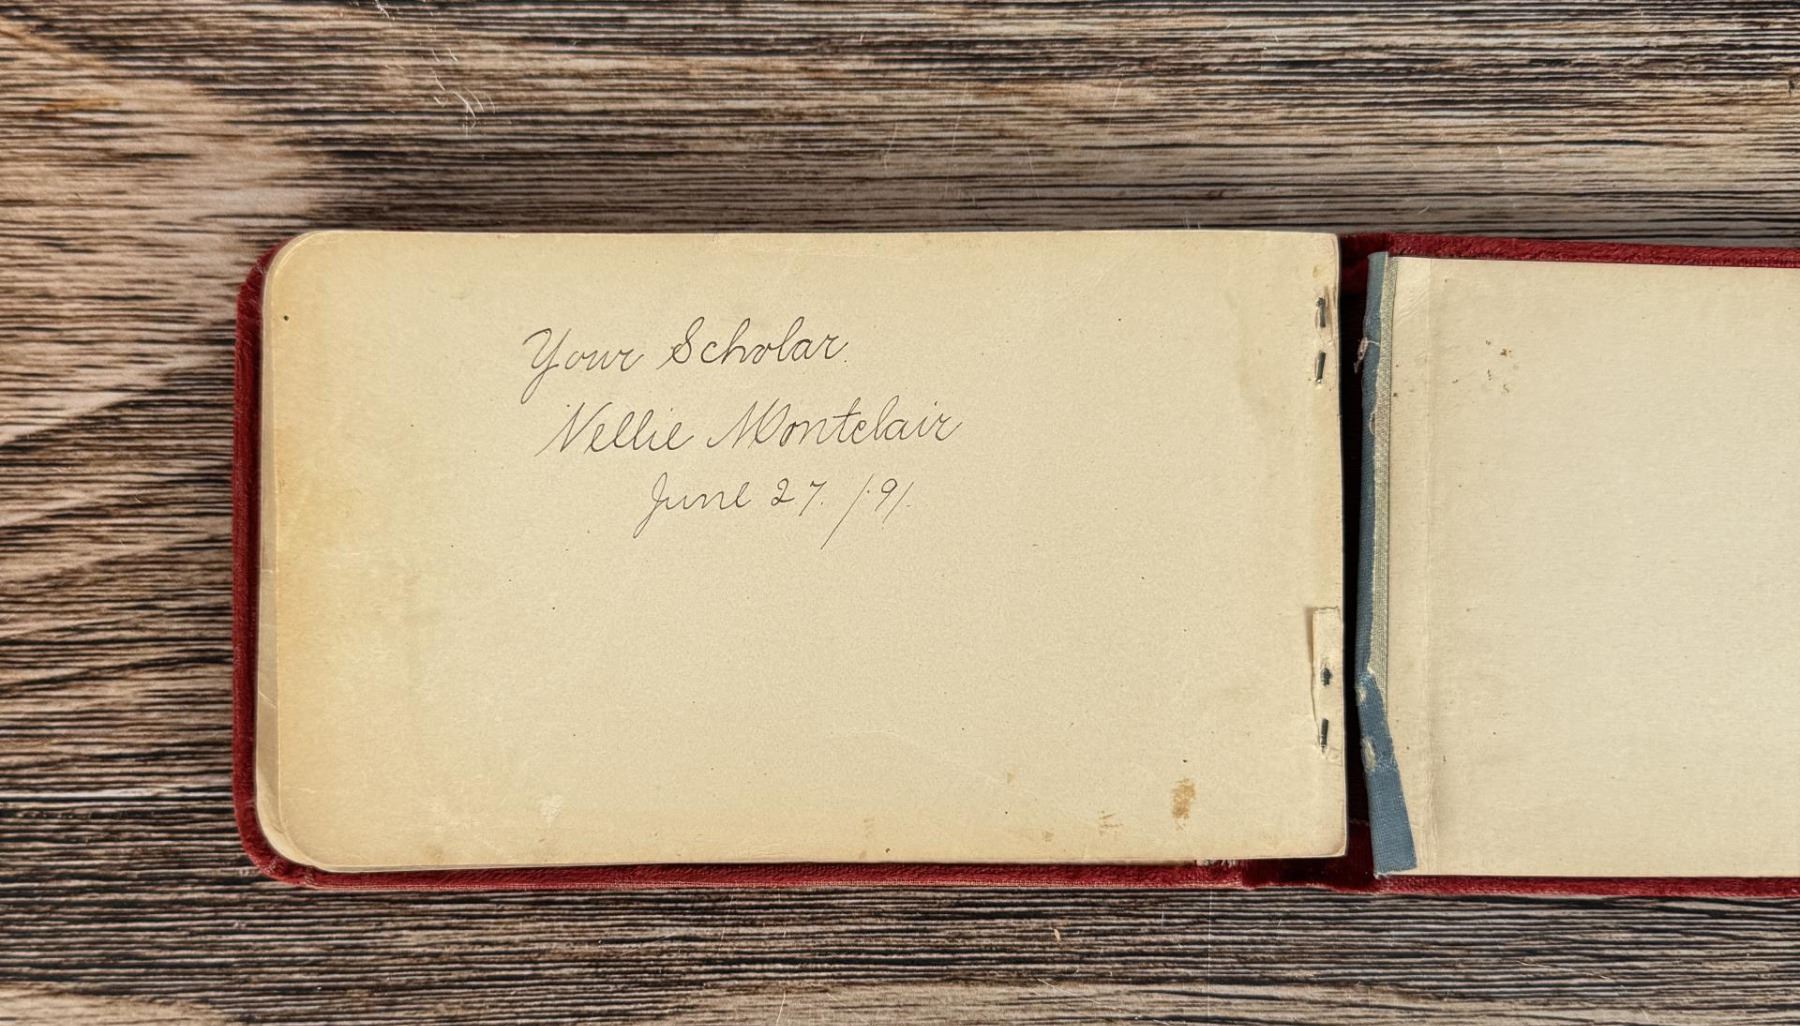 Your Scholar.
Nellie Montclair
June 27. /91.